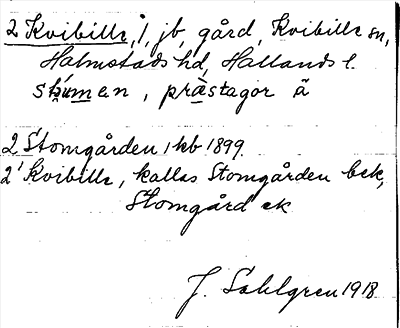 2 Kvibille, 1, jb, gård, Kvibille sn,
Halmstads hd, Hallands l.
stúmen, prästagor ä
2 Stomgården, kb 1899.
2¹ Kvibille, kallas Stomgården bek,
Stomgård ek
J. Sahlgren 1918